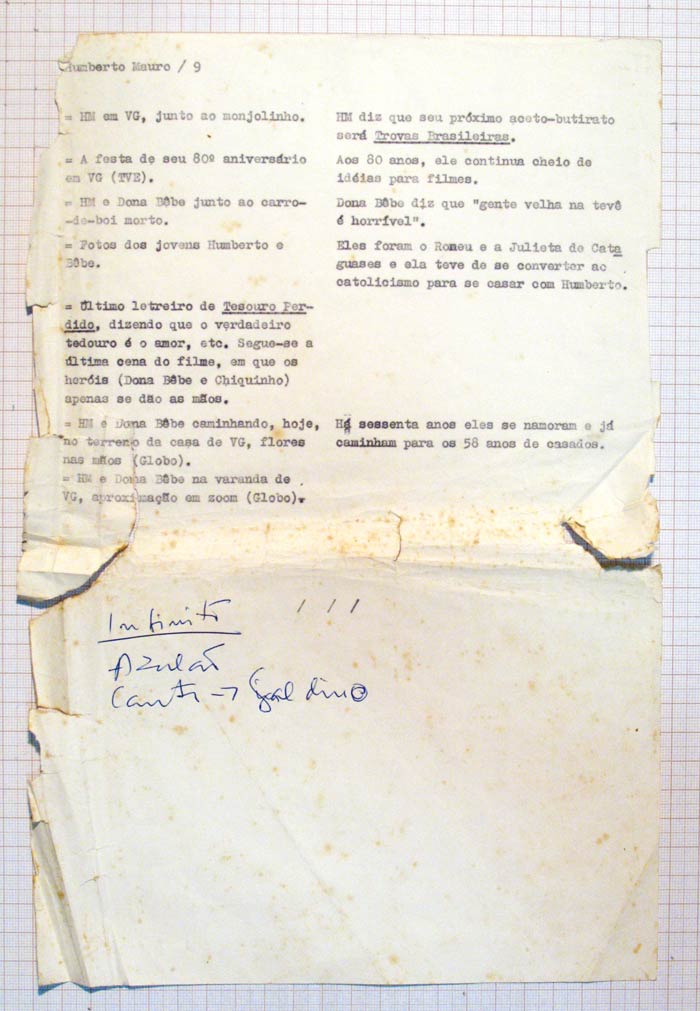 Humberto Mauro / 9
= HM em VG, junto ao monjolinho.
HM diz que seu próximo aceto-butirato
será Trovas Brasileiras.
= A festa de seu 80º aniversário
em VG (TVE).
Aos 80 anos, ele continua cheio de
idéias para filmes.
= HM e Dona Bêbe junto ao carro-
-de-boi morto.
Dona Bêbe diz que "gente velha na tevê
é horrível".
= Fotos dos jovens Humberto e
Bêbe.
Eles foram o Romeu e a Julieta de Cata
guases e ela teve de se converter ao
catolicismo para se casar com Humberto.
= Último letreiro de Tesouro Per-
dido, dizendo que o verdadeiro
tedouro é o amor, etc. Segue-se a
última cena do filme, em que os
heróis (Dona Bêbe e Chiquinho)
apenas se dão as mãos.
= HM e Dona Bêbe caminhando, hoje,
no terreno da casa de VG, flores
nas mãos (Globo).
Há sessenta anos eles se namoram e já
caminham para os 58 anos de casados.
= HM e Dona Bêbe na varanda de
VG, aproximação em zoom (Globo).
Infinito / / /
Azulão
Canto → Galdino